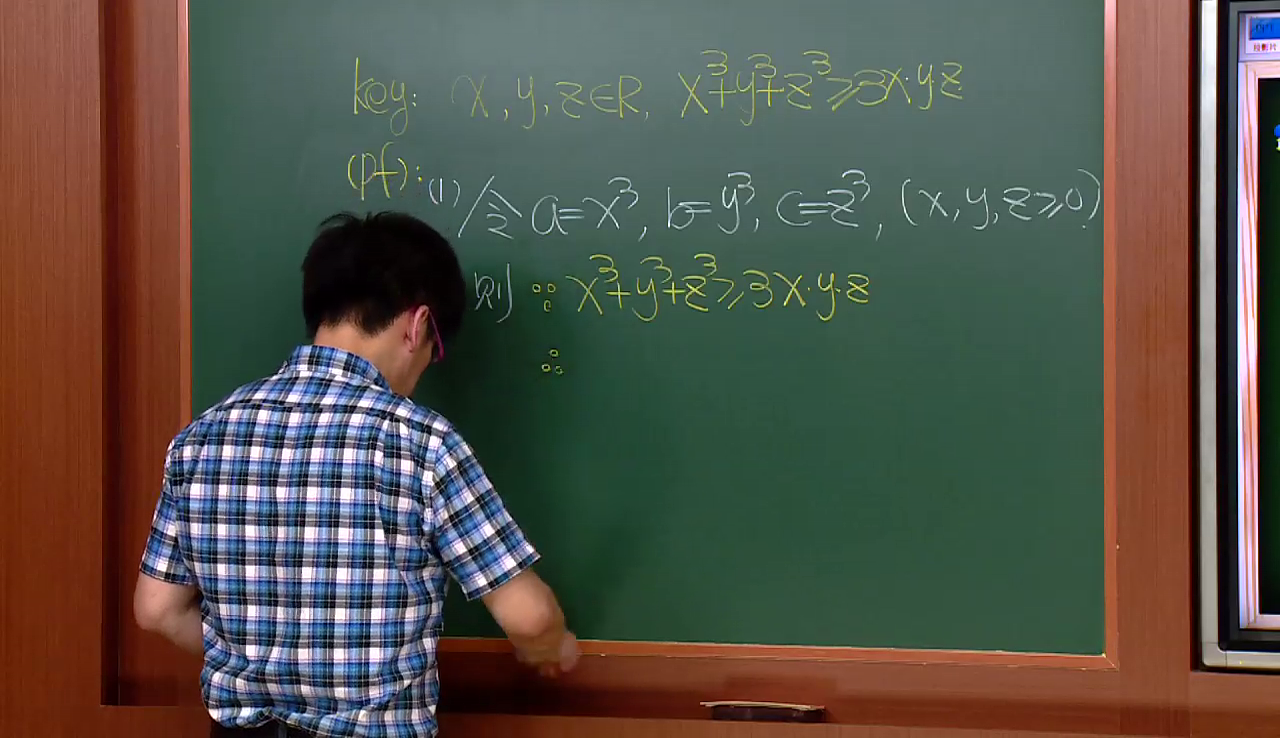 key: x, y, z∈R, x³+y³+z³≥3x·y·z
(pf):(1) 令 a=x³, b=y³, c=z³, (x, y, z≥0)
则 ∵ x³+y³+z³≥3x·y·z
∴